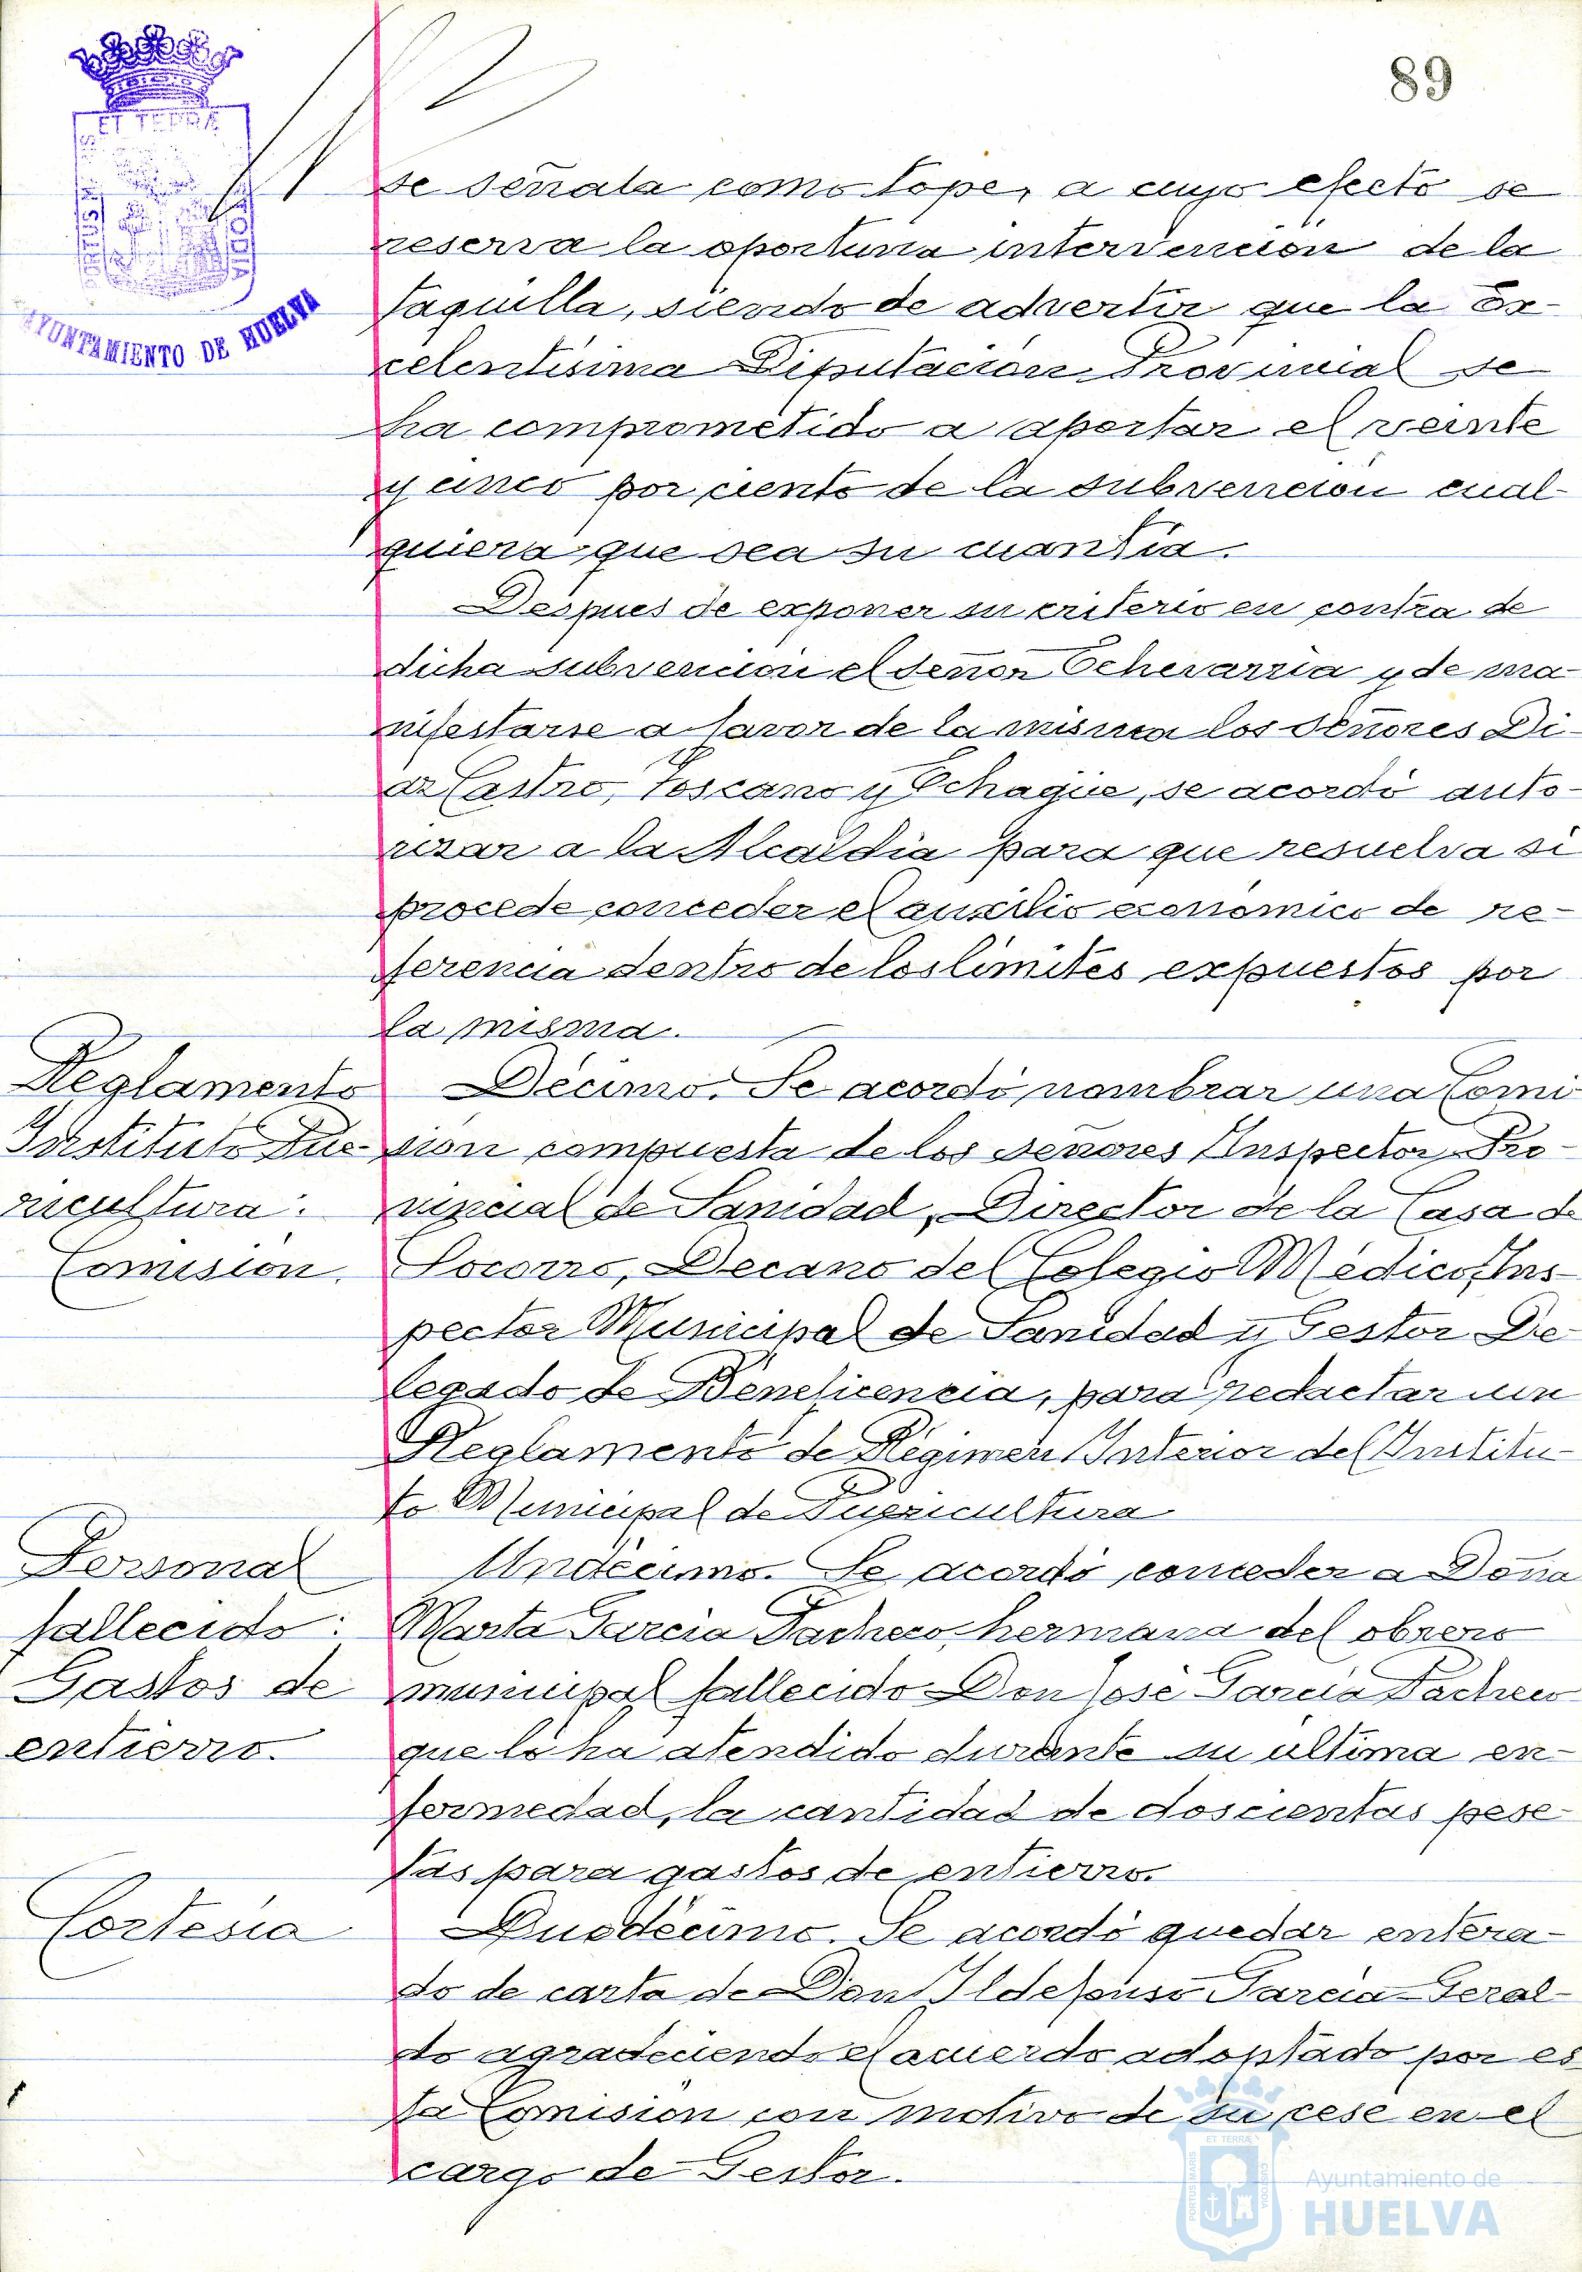 89
ET TERRÆ
AYUNTAMIENTO DE HUELVA
se señala como tope, a cuyo efecto se
reserva la oportuna intervención de la
taquilla, siendo de advertir que la Ex-
celentísima Diputación Provincial se
ha comprometido a aportar el veinte
y cinco por ciento de la subvención cual-
quiera que sea su cuantía.
Despues de exponer su criterio en contra de
dicha subvención el señor Echevarria y de ma-
nifestarse a favor de la misma los señores Di-
az Castro, Toscano y Echagüe, se acordó auto-
rizar a la Alcaldia para que resuelva si
procede conceder el auxilio económico de re-
ferencia dentro de los limites expuestos por
la misma.
Reglamento
Instituto Pue-
ricultura:
Comisión.
Décimo. Se acordó nombrar una Comi
sión compuesta de los señores Inspector Pro-
vincial de Sanidad, Director de la Casa de
Socorro, Decano del Colegio Médico, Ins-
pector Municipal de Sanidad y Gestor De-
legado de Beneficencia, para redactar un
Reglamento de Régimen Interior del Institu-
to Municipal de Puericultura
Personal
fallecido:
Gastos de
entierro.
Undécimo. Se acordó conceder a Doña
Marta Garcia Pacheco, hermana del obrero
municipal fallecido Don José Garcia Pacheco
que lo ha atendido durante su última en-
fermedad, la cantidad de doscientas pese-
tas para gastos de entierro.
Cortesía
Duodécimo. Se acordó quedar entera-
do de carta de Don Ildefonso Garcia-Geral-
do agradeciendo el acuerdo adoptado por es
ta Comisión con motivo de su cese en el
cargo de Gestor.
ET TERRÆ
PORTUS MARIS
CUSTODIA
Ayuntamiento de
HUELVA